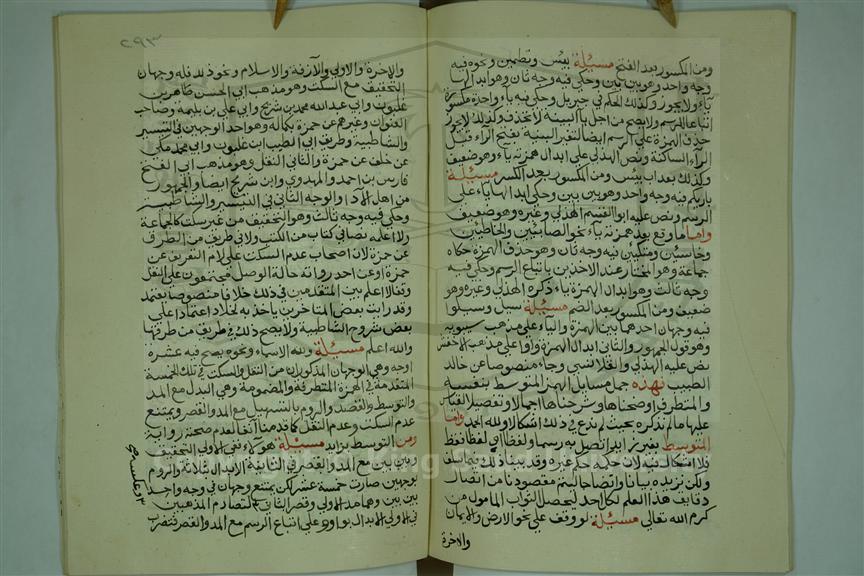 ومن المكسور بعد الفتح مسئلة يبئس وتطمئن ونحوه فيه
وجه واحد وهو بين بين وحكي فيه وجه ثان وهو ابدالها
ياء ولا يجوز وكذلك الحكم في جبريل وحكي فيه ياء واحدة مكسورة
اتباعا للرسم ولا يصح من اجل ياء البنية لا تحذف وكذلك لا يجوز
حذف الهمزة على الرسم ايضا لتغير البنية بفتح الراء قبل
الياء الساكنة ونص الهذلي على ابدال همزته ياء وهو ضعيف
وكذلك بعذاب بئيس ومن المكسور بعد الكسر مسئلة
بارئكم فيه وجه واحد وهو بين بين وحكي ابدالها ياء على
الرسم ونص عليه ابو القسم الهذلي وغيره وهو ضعيف
واما ما وقع بعد همزته ياء نحو الصابئين والخاطئين
وخاسئين ومتكئين فيه وجه ثان وهو حذف الهمزة حكاه
جماعة وهو المختار عند الآخذين باتباع الرسم وحكي فيه
وجه ثالث وهو ابدال الهمزة ياء ذكره الهذلي وغيره وهو
ضعيف ومن المكسور بعد الضم مسئلة سيل وسيلوا
فيه وجهان احدهما بين الهمزة والياء على مذهب سيبويه
وهو قول الجمهور والثاني ابدال الهمزة واوا على مذهب الاخفش
نص عليه الهذلي والقلانسي وجاء منصوصا عن خالد
الطبيب فهذه جمل مسايل الهمز المتوسط بنفسه
والمتطرف اوضحناها وشرحناها اجمالا وتفصيلا القياس
عليها ما لم نذكره بحيث لم ندع في ذلك اشكالا ولله الحمد واما
المتوسط بغيره من زايد اتصل به رسما ولفظا او لفظا فقط
فلا اشكال فيه لان حكمه حكم غيره وقد بينا ذلك
ولكن نزيده بيانا وايضاحا ليتم مقصودنا من ايصال
دقايق هذا العلم لكل احد ليحصل الثواب المامول من
كرم الله تعالى مسئلة لو وقف على نحو الارض والايمان
والاخرة
٢٩٣
والاخرة والاولى والآزفة والاسلام ونحو ذلك فله وجهان
التحقيق مع السكت وهو مذهب ابي الحسن طاهر بن
غلبون وابي عبد الله محمد بن شريح وابي علي بن بليمة وصاحب
العنوان وغيرهم عن حمزة بكماله وهو احد الوجهين في التيسير
والشاطبية وطريق ابي الطيب ابن غلبون وابي محمد مكي
عن خلف عن حمزة والثاني النقل وهو مذهب ابي الفتح
فارس بن احمد والمهدوي وابن شريح ايضا والجمهور
من اهل الآداء والوجه الثاني في التيسير والشاطبية
وحكي فيه وجه ثالث وهو التحقيق من غير سكت كالجماعة
ولا اعلمه نصا في كتاب من الكتب ولا في طريق من الطرق
عن حمزة لان اصحاب عدم السكت على لام التعريف عن
حمزة او عن احد رواته حالة الوصل مجتمعون على النقل
وقفا لا اعلم بين المتقدمين في ذلك خلافا منصوصا يعتمد
وقد رايت بعض المتاخرين ياخذ به لخلاد اعتمادا على
بعض شروح الشاطبية ولا يصح ذلك في طريق من طرقها
والله اعلم مسئلة ولله الاسماء ونحوه يصح فيه عشرة
اوجه وهي الوجهان المذكوران من النقل والسكت في تلك الخمسة
المتقدمة في الهمزة المتطرفة والمضمومة وهي البدل مع المد
والتوسط والقصر والروم بالتسهيل مع المد والقصر ويمتنع
عدم السكت وعدم النقل كما قدمنا آنفا لعدم صحته رواية
ومن المتوسط بزايد مسئلة هؤلاء ففي الاولى التحقيق
وبين بين مع المد والقصر في الثانية الابدال بثلاثة والروم
بوجهين صارت خمسة عشر لكن يمتنع وجهان في وجه واحد
بين بين وهما مد الاولى وقصر الثاني لتصادم المذهبين
في الاولى الابدال بواو على اتباع الرسم مع المد والقصر فتضرب